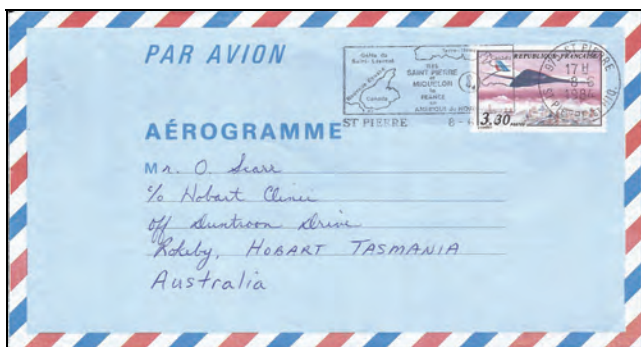 PAR AVION
AÉROGRAMME
Golfe du
Saint-Laurent
Terre-Neuve
Nouvelle Ecosse
Canada
ILES
SAINT PIERRE
et
MIQUELON
la
FRANCE
en
AMERIQUE du NORD
ST PIERRE 8-6
REPUBLIQUE FRANÇAISE
3,30
POSTES
975 ST PIERRE
17 H
8-6
1984
ST PIERRE
Mr. O. Scarr
c/o Hobart Clinic
off Duntroon Drive
Rokeby, HOBART TASMANIA
Australia